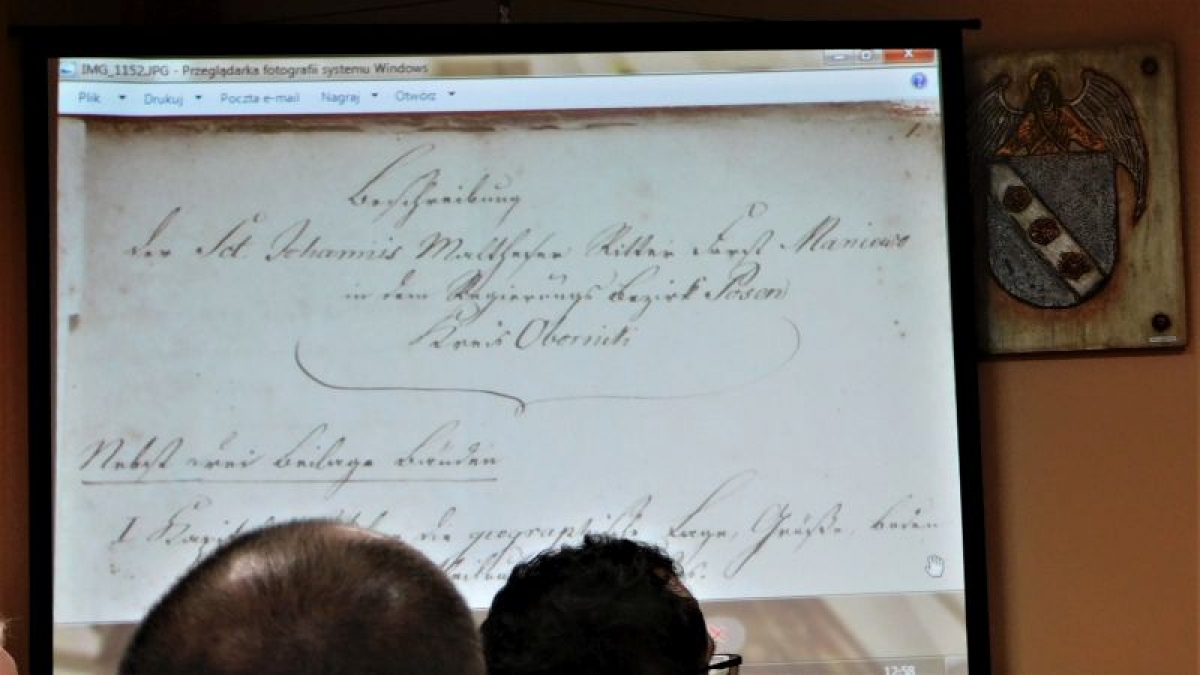 IMG_1152.JPG - Przeglądarka fotografii systemu Windows
Plik Drukuj Poczta e-mail Nagraj Otwórz
1.
Beschreibung
der Sct. Johannis Maltheser Ritter Forst Maniewo
in dem Regierungs Bezirk Posen
Kreis Obornik
Nebst drei Beilage Bänden
I die geographische Lage, Größe, Boden
12:58